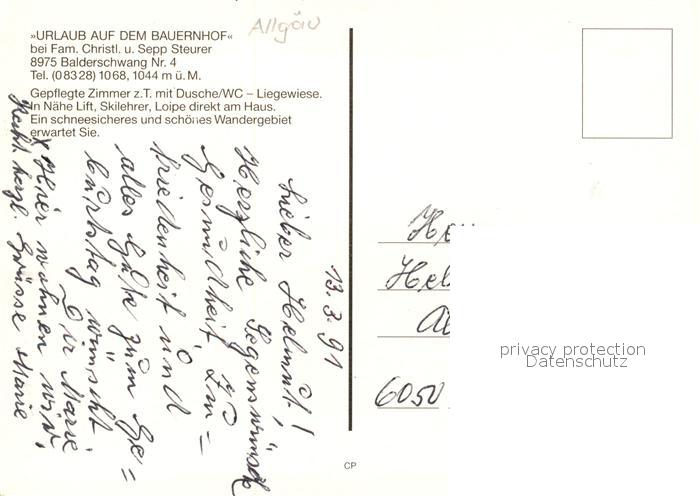 Allgäu
»URLAUB AUF DEM BAUERNHOF«
bei Fam. Christl. u. Sepp Steurer
8975 Balderschwang Nr. 4
Tel. (0 83 28) 10 68, 1044 m ü. M.
Gepflegte Zimmer z.T. mit Dusche/WC – Liegewiese.
In Nähe Lift, Skilehrer, Loipe direkt am Haus.
Ein schneesicheres und schönes Wandergebiet
erwartet Sie.
13.3.91
Lieber Helmut!
Herzliche Segenswünsche
Gesundheit, Zu=
friedenheit und
alles Gute zum Ge=
burtstag wünscht
Dir Marie
x Hier wohnen wir,
herzl. Grüsse Marie
He
Hel
6050
privacy protection
Datenschutz
CP